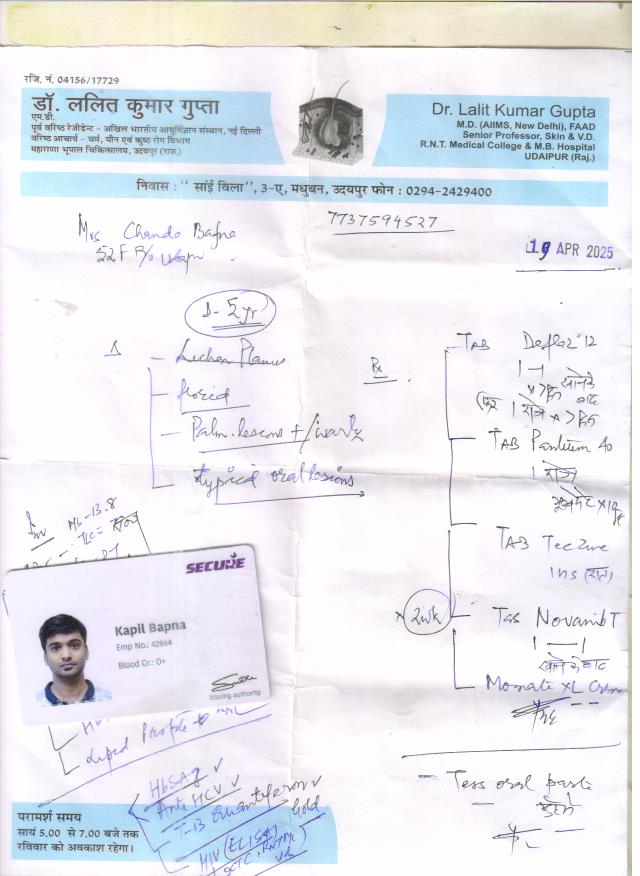 रजि. नं. 04156/17729
डॉ. ललित कुमार गुप्ता
एम.डी.
पूर्व वरिष्ठ रेजीडेन्ट - अखिल भारतीय आयुर्विज्ञान संस्थान, नई दिल्ली
वरिष्ठ आचार्य - चर्म, यौन एवं कुष्ठ रोग विभाग
महाराणा भूपाल चिकित्सालय, उदयपुर (राज.)
Dr. Lalit Kumar Gupta
M.D. (AIIMS, New Delhi), FAAD
Senior Professor, Skin & V.D.
R.N.T. Medical College & M.B. Hospital
UDAIPUR (Raj.)
निवास : '' सांई विला'', 3-ए, मधुबन, उदयपुर फोन : 0294-2429400
7737594527
Mrs Chanda Bafna
52 F R/o
19 APR 2025
D - 5 yr
Δ - Lichen Planus
- florid
- Palm. lesions + / warty
- typical oral lesions
Rx
TAB Deflaz 12
1 - 1
खाने के बाद
TAB Pantium 40
1
TAB Teczine
1 HS (रात)
x 2wk
TAB Novanib T
1 — 1
खाने के बाद
Momate XL Crm
- Tess oral paste
Inv Hb - 13.8
TLC =
SECURE
Kapil Bapna
Emp No.: 42864
Blood Gr.: O+
Issuing authority
Lipid Profile
HbSAg ✓
Anti HCV ✓
T-B Quantiferon ✓
Gold
HIV (ELISA)
परामर्श समय
सायं 5.00 से 7.00 बजे तक
रविवार को अवकाश रहेगा।